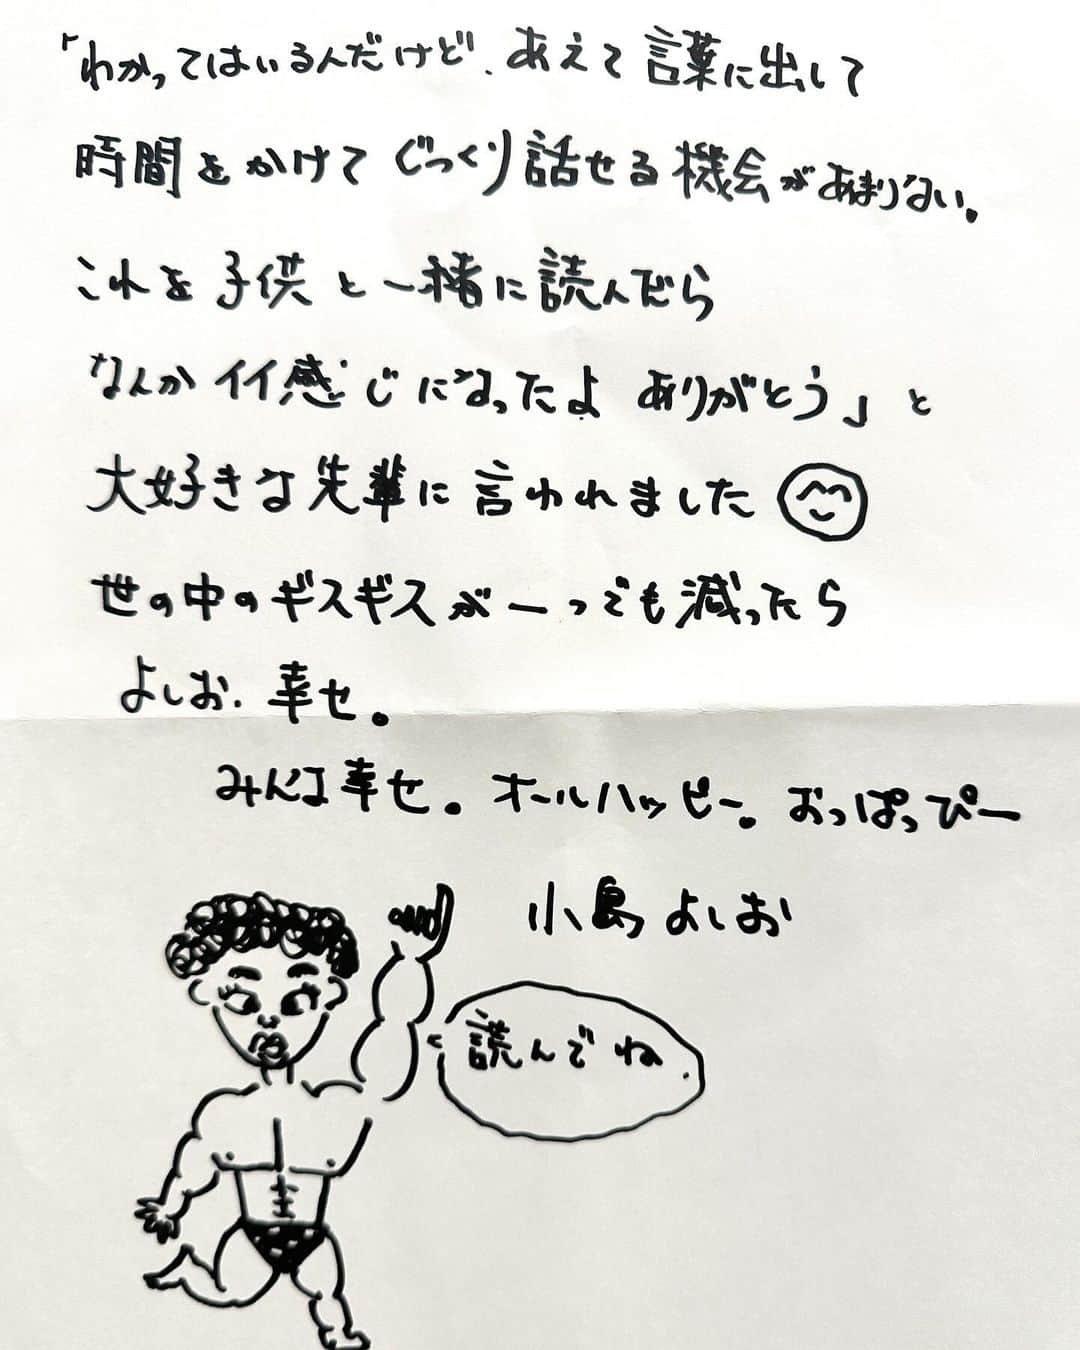 「わかってはいるんだけど、あえて言葉に出して
時間をかけてじっくり話せる機会があまりない。
これを子供と一緒に読んだら
なんかイイ感じになったよ ありがとう」と
大好きな先輩に言われました
世の中のギスギスが一つでも減ったら
よしお、幸せ。
みんな幸せ。オールハッピー。おっぱっぴー
小島よしお
読んでね